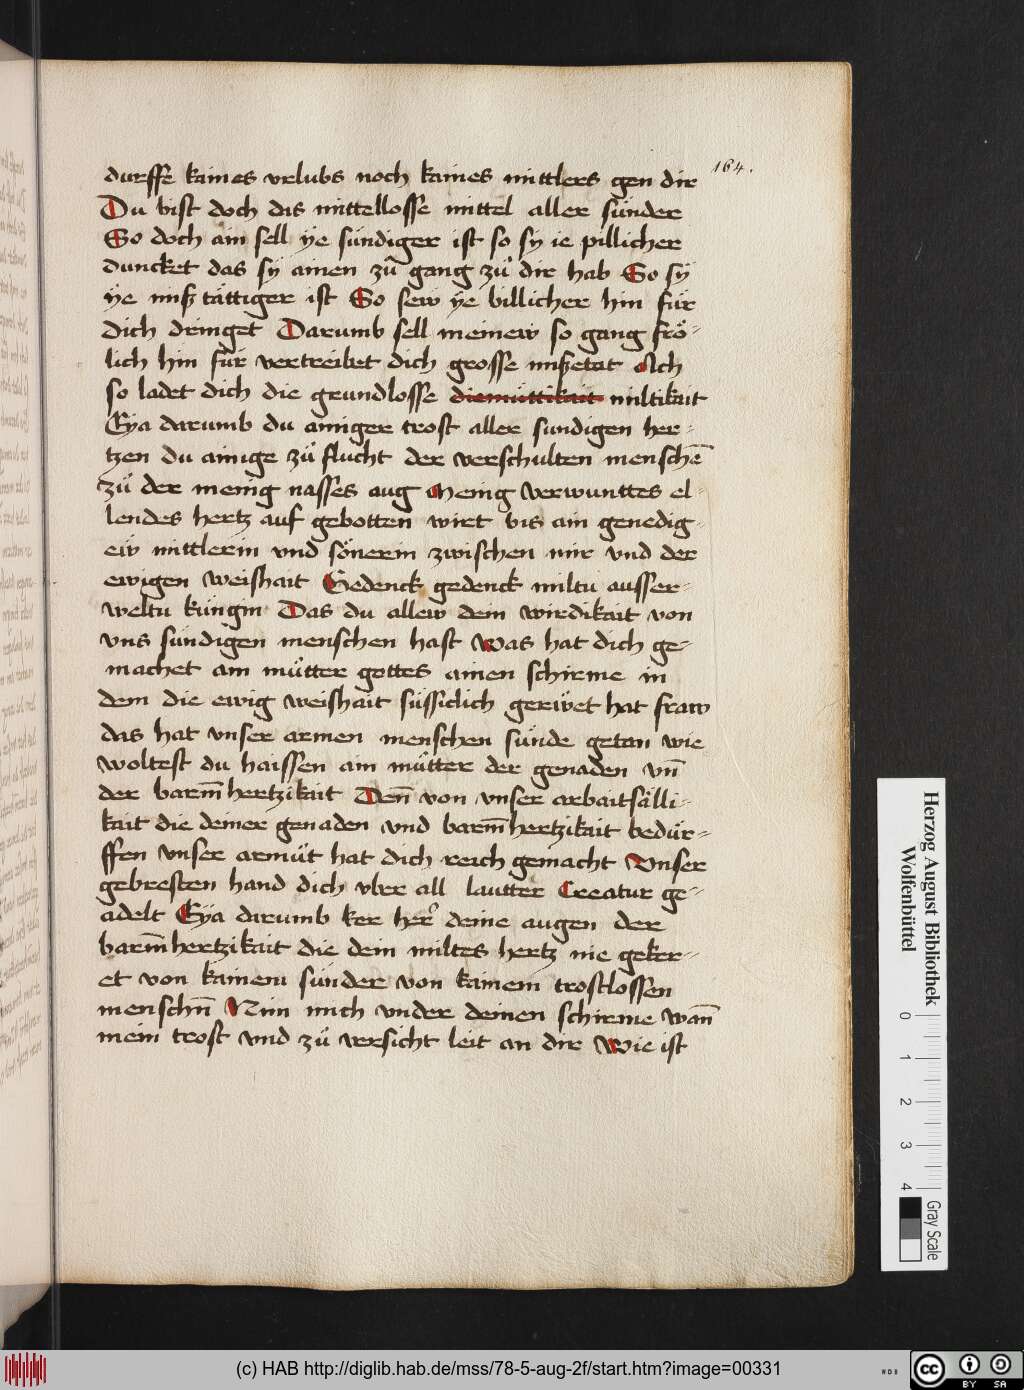 164.
durffe kaines vrlubs noch kaines mittlers gen dir
Du bist doch das mittellosse mittel aller sünder
So doch ain sell ÿe sündiger ist so sy ie pillicher
duncket das sÿ ainen zů gang zů dir hab So sÿ
ÿe miß tättiger ist So sew ÿe billicher hin für
dich dringet Darumb sell meinew so gang frö-
lich hin für vertreibet dich grosse mißetat Ach
so ladet dich die grundlosse diemüttikait miltikait
Eÿa darumb du ainiger trost aller sundigen her-
tzen du ainige zů flucht der verschulten menschē
zů der menig nasses aug Menig verwunttes el-
lendes hertz auf gebotten wirt bis ain genedig-
ew mittlerin vnd sönerin zwischen mir vnd der
ewigen weishait Gedenck gedenck miltu ausser-
weltu küngin Das du allew dein wirdikait von
vns sündigen menschen hast Was hat dich ge-
machet am můtter gottes ainen schirme in
dem die ewig weishait süssiclich gerüet hat fraw
das hat vnser armen menschen sünde getan wie
woltest du haissen am můtter der genaden vn̄
der barm̄hertzikait Den̄ von vnser arbaitsälli-
kait die deiner genaden vnd barm̄hertzikait bedür-
ffen vnser armüt hat dich reich gemacht Vnser
gebresten hand dich vber all lautter Creatur ge-
adelt Eÿa darumb ker her deine augen der
barm̄hertzikait die dein miltes hertz nie geker-
et von kainem sünder von kainem trostlossen
menschn̄ Nim mich vnder deinen schirme wan̄
mein trost vnd zů versicht leit an dir Wie ist
Herzog August Bibliothek
Wolfenbüttel
0 1 2 3 4
Gray Scale
(c) HAB http://diglib.hab.de/mss/78-5-aug-2f/start.htm?image=00331
cc BY SA